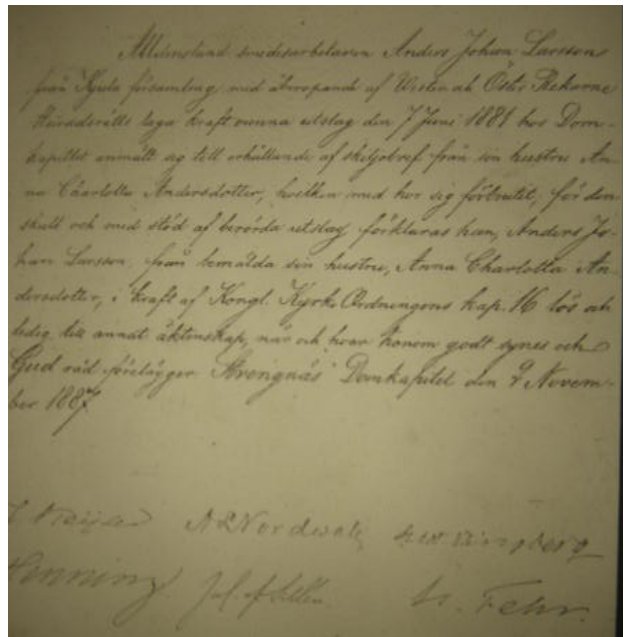 Anders Johan Larsson
från Kjula församling, med åberopande af Wester och Öster Rekarne
Häradsrätts laga kraft vunna utslag den 7 Juni 1881 hos Dom-
kapitlet anmält sig till erhållande af skiljobref från sin hustru An-
na Charlotta Andersdotter, hvilken med hor sig förbrutit; för den-
skull och med stöd af berörda utslag förklaras han, Anders Jo-
han Larsson, från bemälda sin hustru, Anna Charlotta An-
dersdotter, i kraft af Kongl. Kyrko Ordningens kap. 16 lös och
ledig till annat äktenskap, när och hvar honom godt synes och
Gud råd förelägger. Strengnäs Domkapitel den 9 Novem-
ber 1887.
A L Nordwall
H. Fehr.